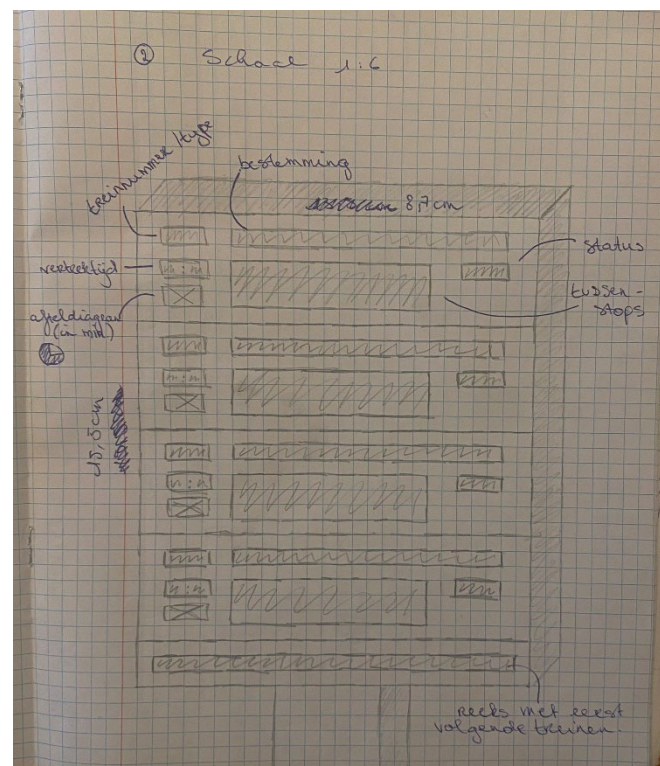 ② Schaal 1:6
treinnummer/type
bestemming
8,7 cm
status
vertrektijd
tussen-
stops
afteldiagram
(in min)
15,5 cm
reeks met eerst
volgende treinen.